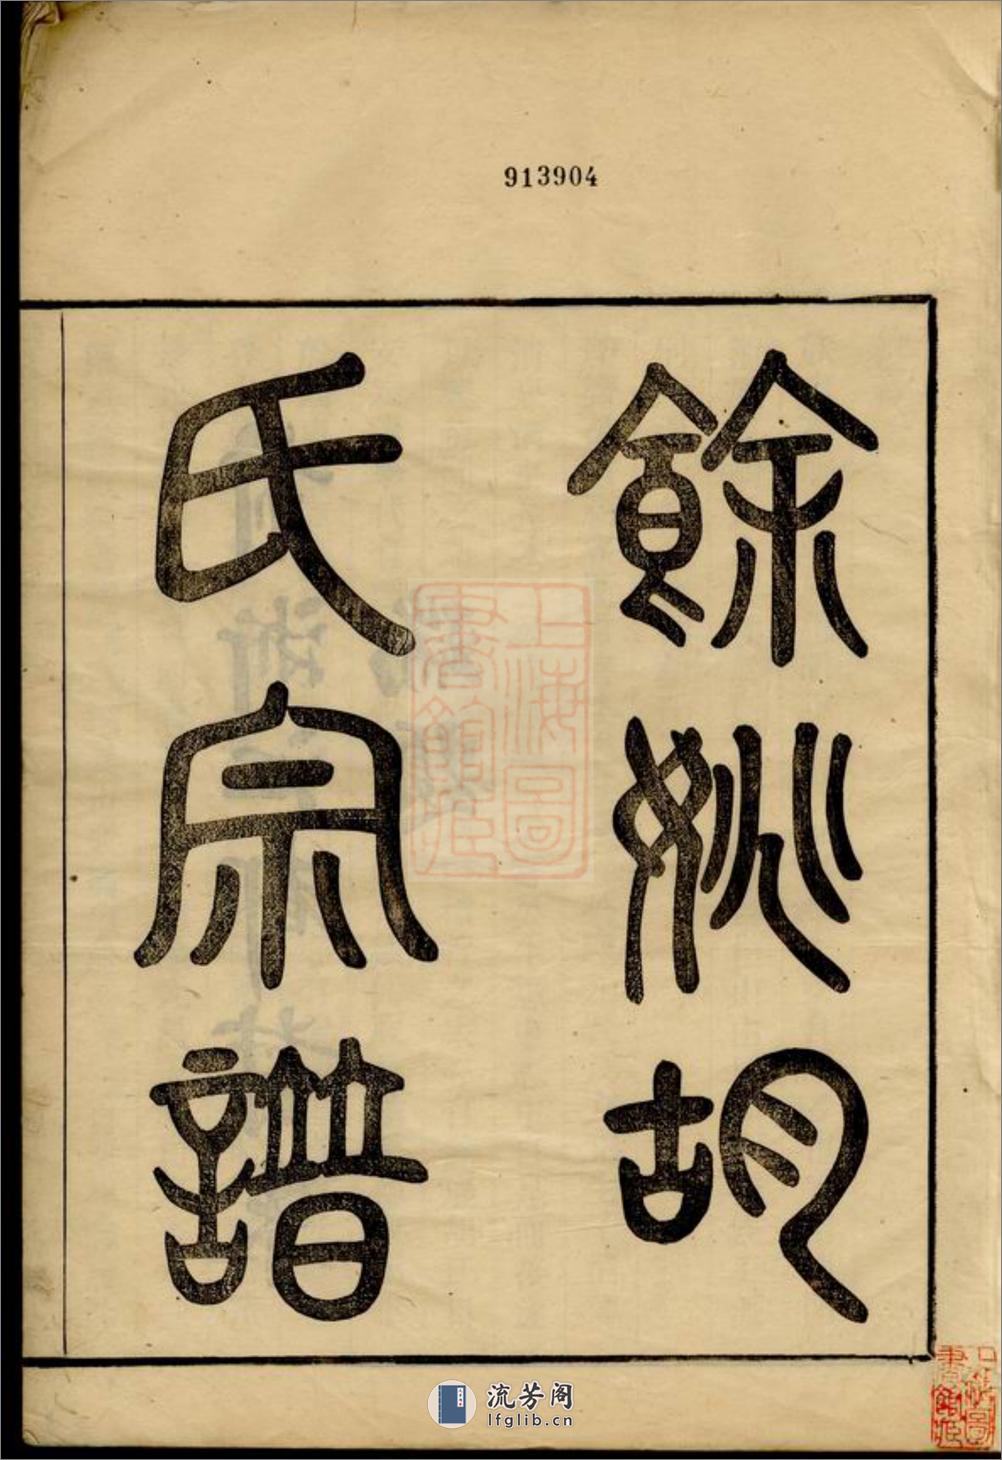 913904
餘姚胡
氏宗譜
上海圖
書館藏
上海圖
書館藏
流芳阁
lfglib.cn